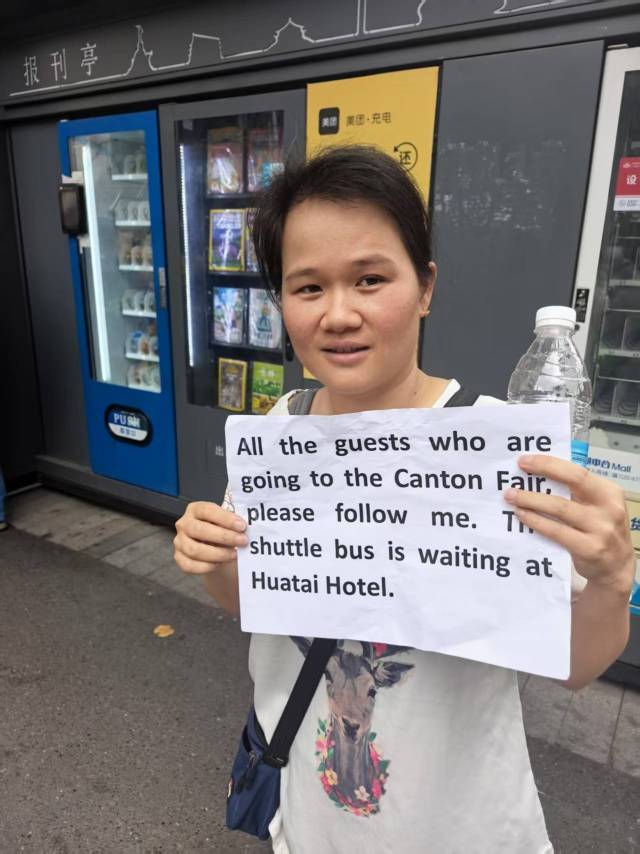 报刊亭
美团
美团·充电
还
设
PUSH
All the guests who are
going to the Canton Fair,
please follow me.
shuttle bus is waiting at
Huatai Hotel.
Mall